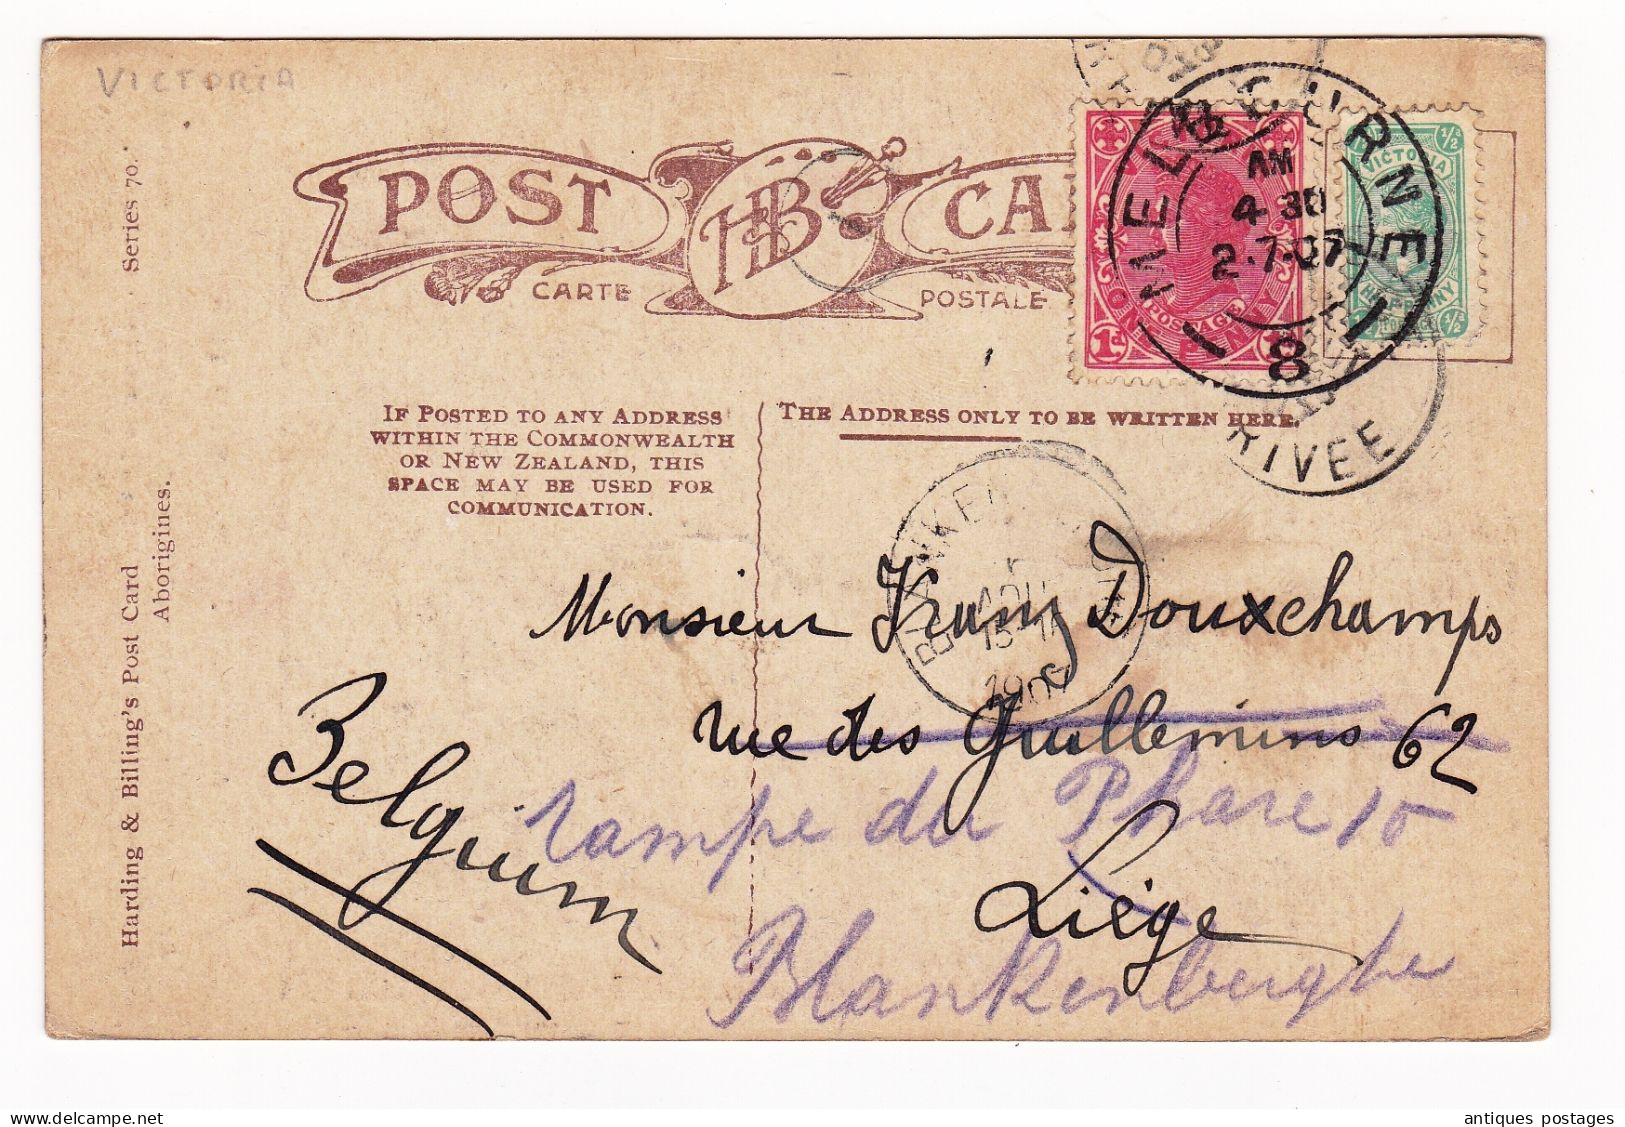 VICTORIA
POST CARD
HB
CARTE POSTALE
MELBOURNE
AM
4 30
2-7-07
8
VICTORIA
½d
HALFPENNY
½d
ONE PENNY
POSTAGE
1d
RIVEE
IF POSTED TO ANY ADDRESS
WITHIN THE COMMONWEALTH
OR NEW ZEALAND, THIS
SPACE MAY BE USED FOR
COMMUNICATION.
THE ADDRESS ONLY TO BE WRITTEN HERE.
BLANKEN
1907
Monsieur Franz Douxchamps
rue des Guillemins 62
rampe du Phare 15
Liège
Blankenberghe
Belgium
Harding & Billing's Post Card Series 70.
Aborigines.
antiques postages